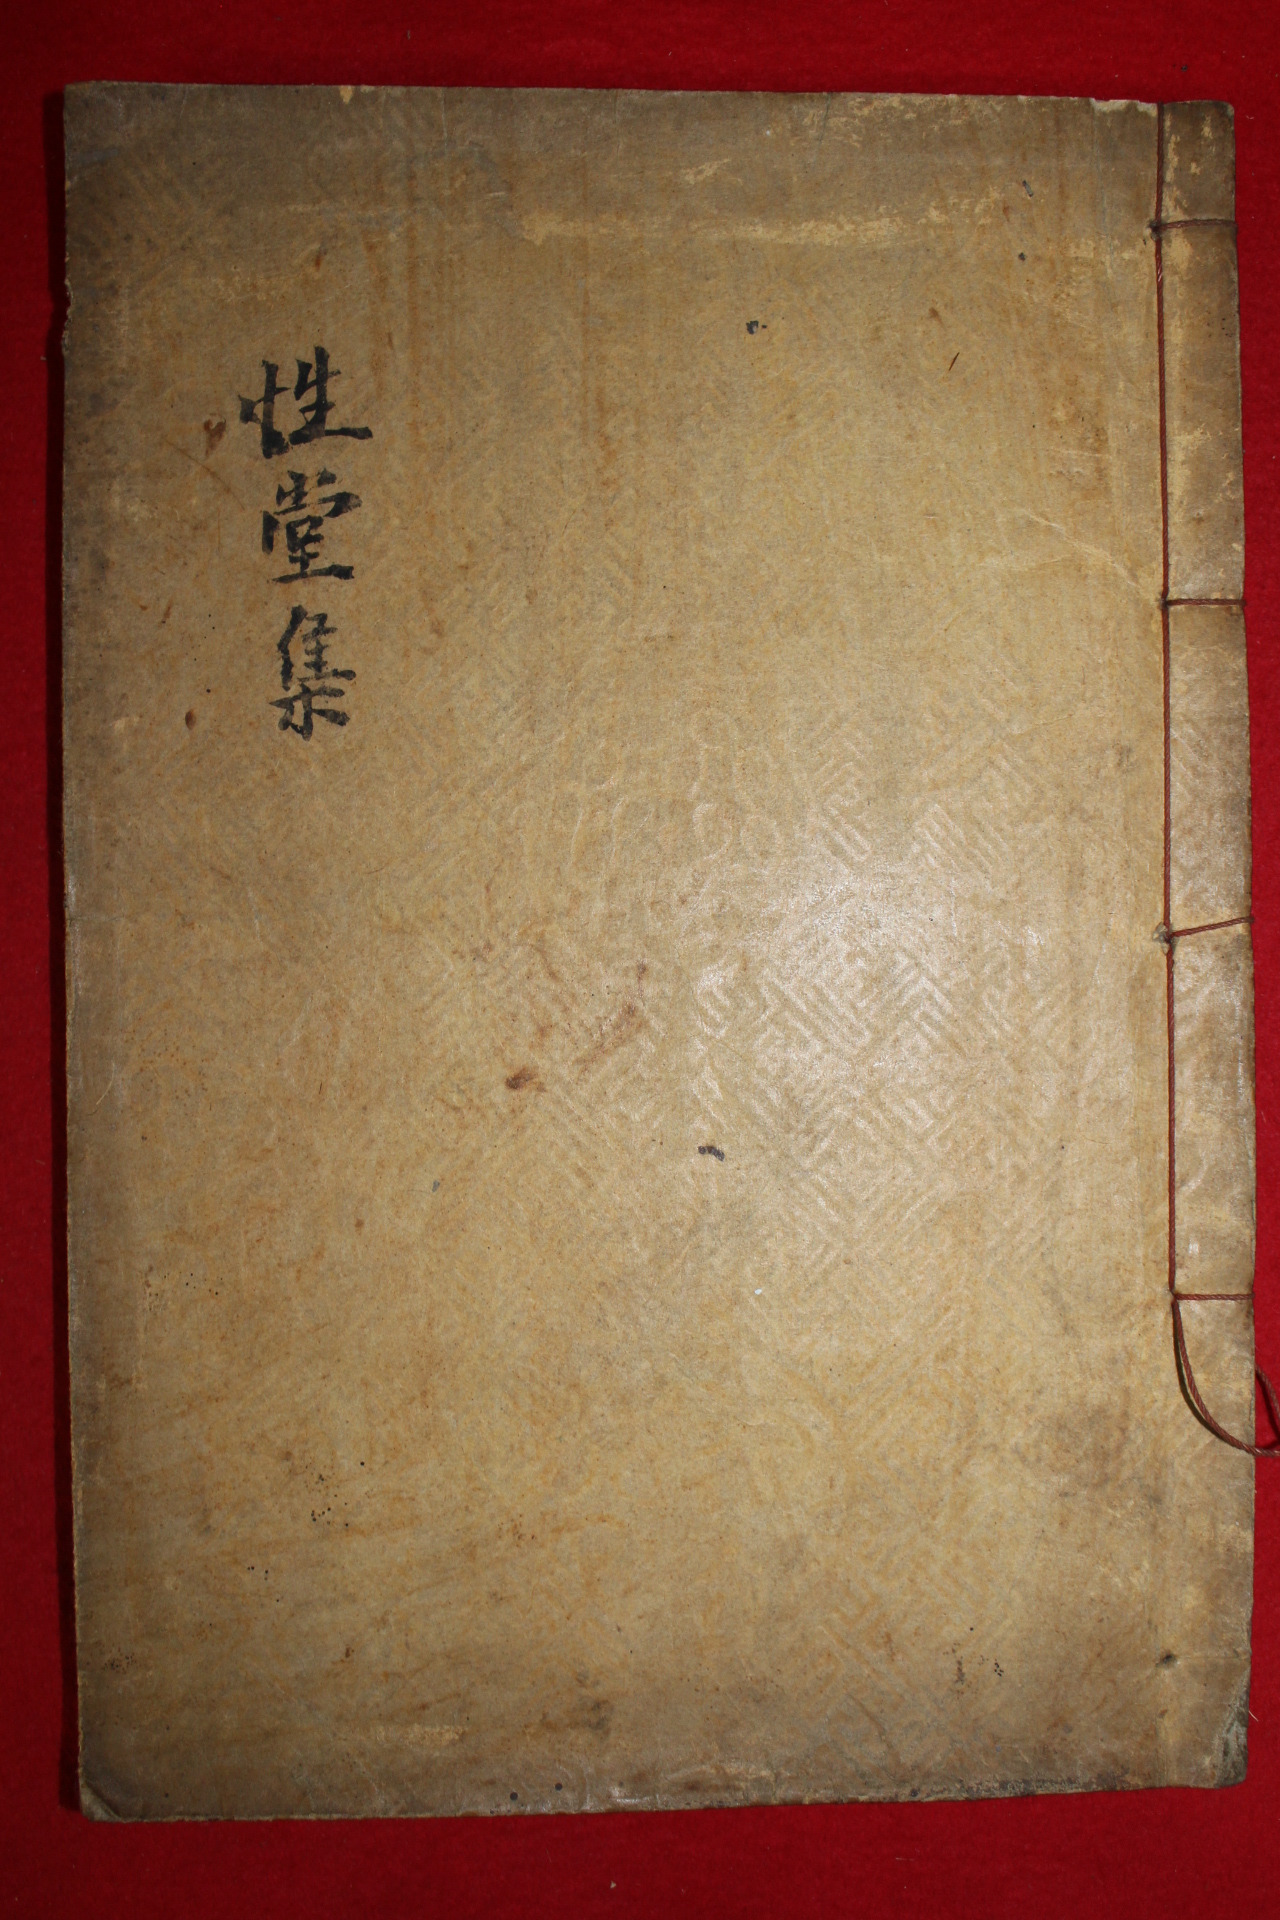 性堂集